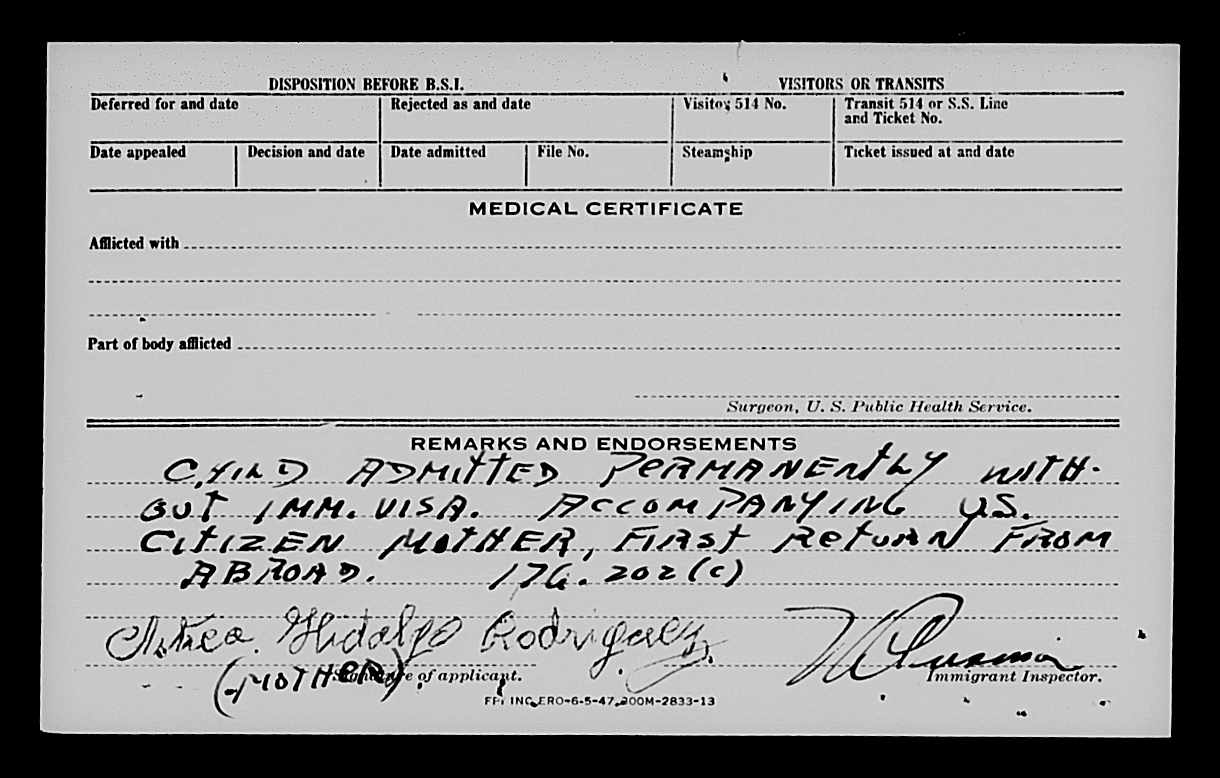 DISPOSITION BEFORE B.S.I. VISITORS OR TRANSITS
Deferred for and date Rejected as and date Visitor 514 No. Transit 514 or S.S. Line and Ticket No.
Date appealed Decision and date Date admitted File No. Steamship Ticket issued at and date
MEDICAL CERTIFICATE
Afflicted with
Part of body afflicted
Surgeon, U. S. Public Health Service.
REMARKS AND ENDORSEMENTS
CHILD ADMITTED PERMANENTLY WITH-
OUT IMM. VISA. ACCOMPANYING US.
CITIZEN MOTHER, FIRST RETURN FROM
ABROAD. 176.202(c)
Hidalgo Rodriguez
(MOTHER) Signature of applicant. Immigrant Inspector.
FPI INC ERO-6-5-47 200M-2833-13